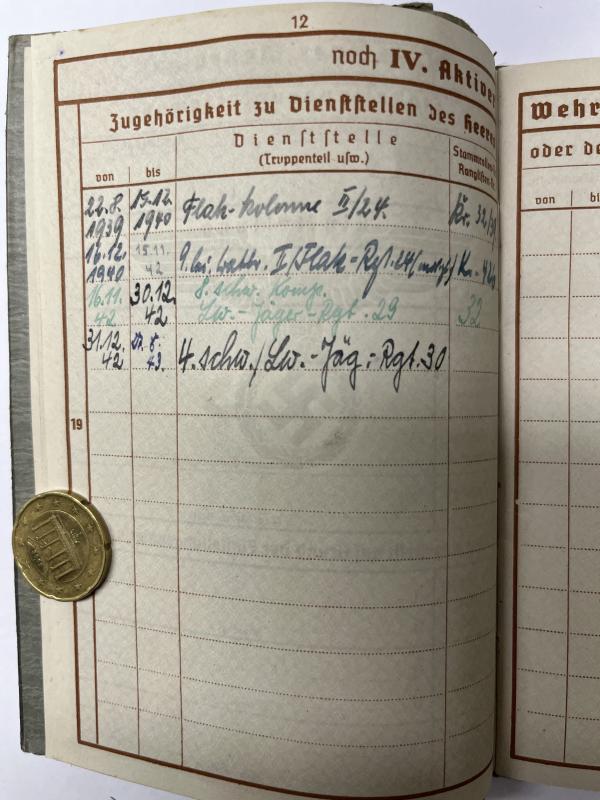 12
noch IV. Aktiver
Zugehörigkeit zu Dienststellen des Heeres
von bis Dienststelle
(Truppenteil usw.)
Stammrollen
Ranglisten-Nr
22.8. 1939 15.12. 1940 Flak-Kolonne II/24. Kr. 32/
16.12. 1940 15.11. 42 II/Flak-Rgt. 24
16.11. 42 30.12. 42 8. schw. Komp.
Lw.-Jäger-Rgt. 29 32
31.12. 42 43. 4. schw./Lw.-Jäg.-Rgt. 30
19
Wehr
oder de
von bi